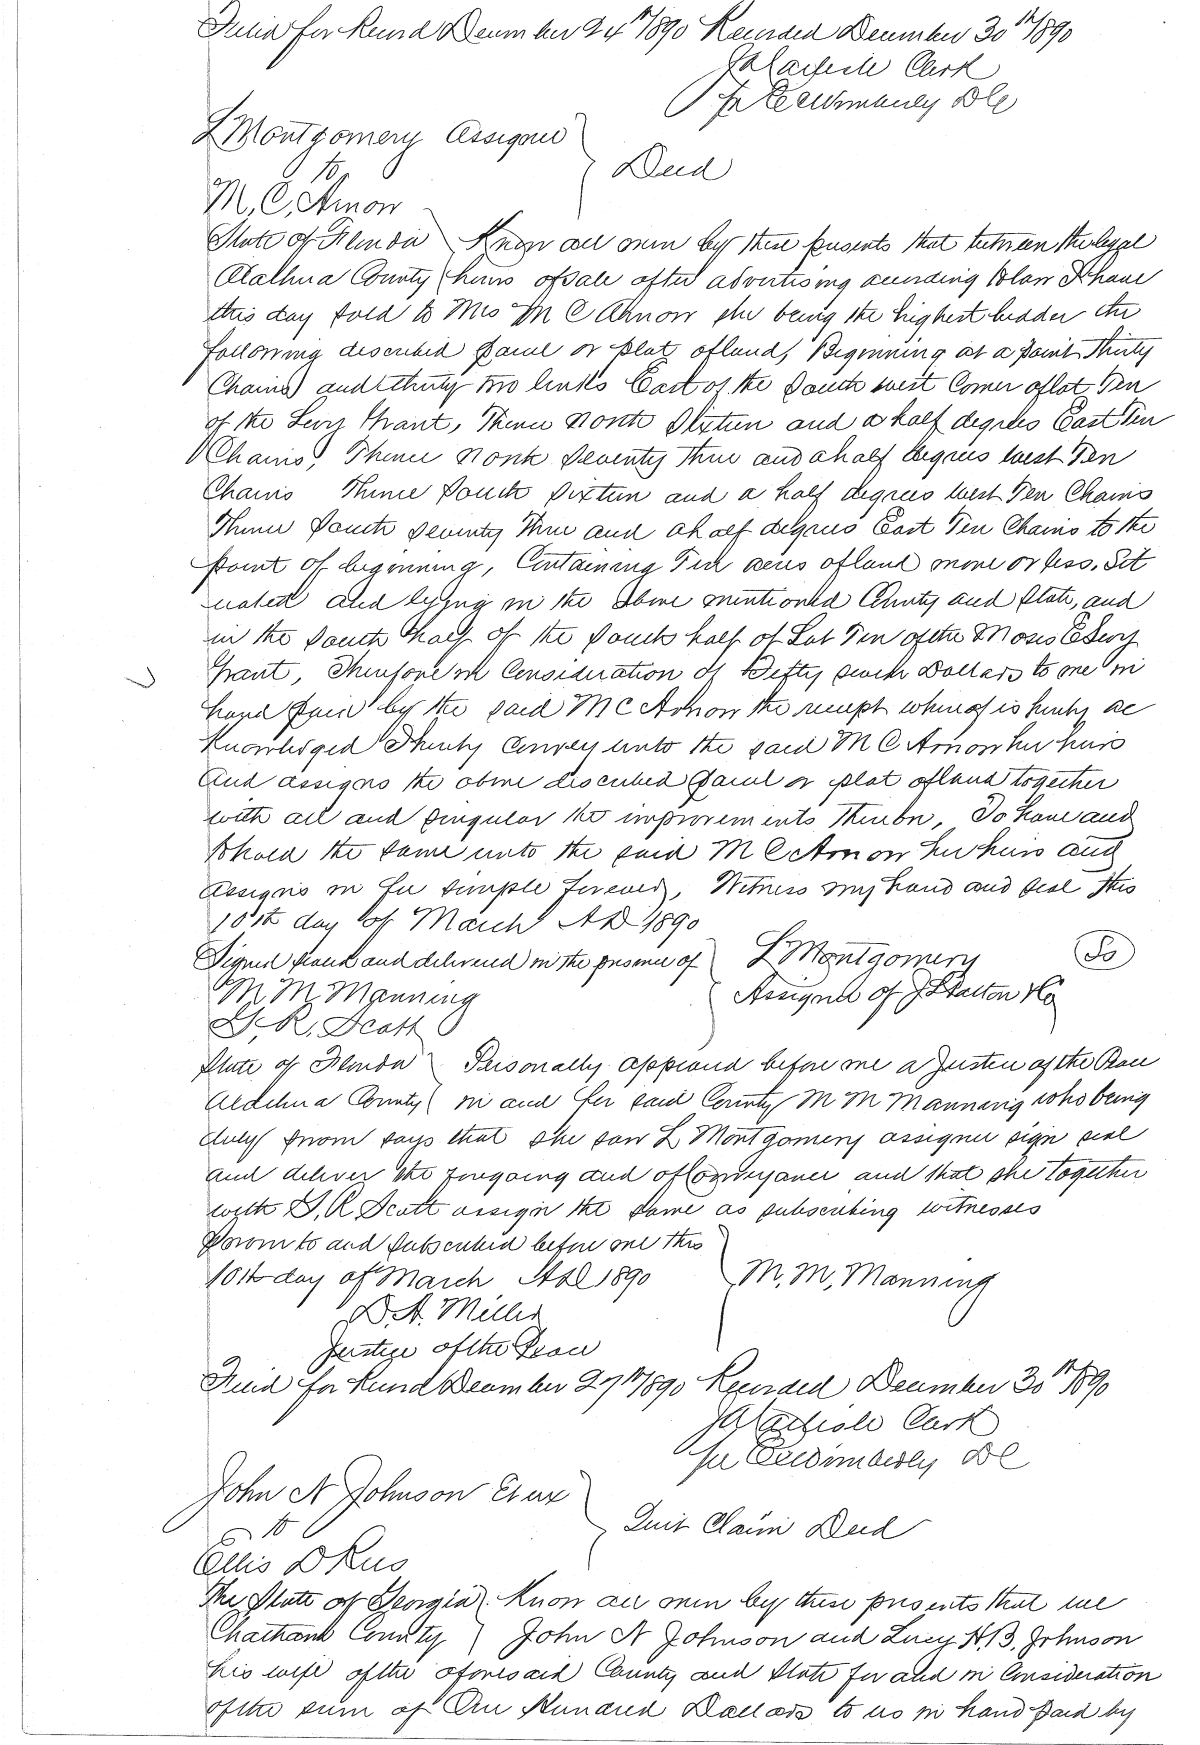 Filed for Record December 24th 1890 Recorded December 30th 1890
J A Carlisle Clerk
pr E C Wimberly D C
L Montgomery Assignee
to
Deed
M, C, Arnow
State of Florida Know all men by these presents that between the legal
Alachua County hours of sale after advertising according to law I have
this day sold to Mrs M C Arnow she being the highest bidder the
following described parcel or plat of land, Beginning at a point Thirty
Chains and thirty two links East of the South west Corner of lot Ten
of the Levy Grant, Thence North Sixteen and a half degrees East Ten
Chains, Thence North Seventy three and a half degrees West Ten
Chains Thence South Sixteen and a half degrees West Ten Chains
Thence South Seventy Three and a half degrees East Ten Chains to the
point of beginning, Containing Ten acres of land more or less. Sit
uated and lying in the above mentioned County and State, and
in the South half of the South half of Lot Ten of the Moses E Levy
Grant, Therefore in Consideration of Fifty seven Dollars to me in
hand paid by the said M C Arnow the receipt whereof is hereby ac
knowledged I hereby Convey unto the said M C Arnow her heirs
and assigns the above described parcel or plat of land together
with all and singular the improvements thereon, To have and
to hold the same unto the said M C Arnow her heirs and
assigns in fee simple forever, Witness my hand and seal this
10th day of March A D 1890
Signed sealed and delivered in the presence of L Montgomery
M. M. Manning Assignee of J Dalton & Co
G. R. Scott
State of Florida Personally appeared before me a Justice of the Peace
Alachua County in and for said County M M Manning who being
duly sworn says that she saw L Montgomery assignee sign seal
and deliver the foregoing and of Conveyance and that she together
with G. R Scott assign the same as subscribing witnesses
Sworn to and subscribed before me this
10th day of March A D 1890 M. M, Manning
D. A. Miller
Justice of the Peace
Filed for Record December 27th 1890 Recorded December 30th 1890
J A Carlisle Clerk
pr E C Wimberly D C
John N Johnson Et ux
to
Quit Claim Deed
Ellis D
The State of Georgia Know all men by these presents that we
Chatham County John N Johnson and Lucy H. B. Johnson
his wife of the aforesaid County and State for and in Consideration
of the sum of One Hundred Dollars to us in hand paid by